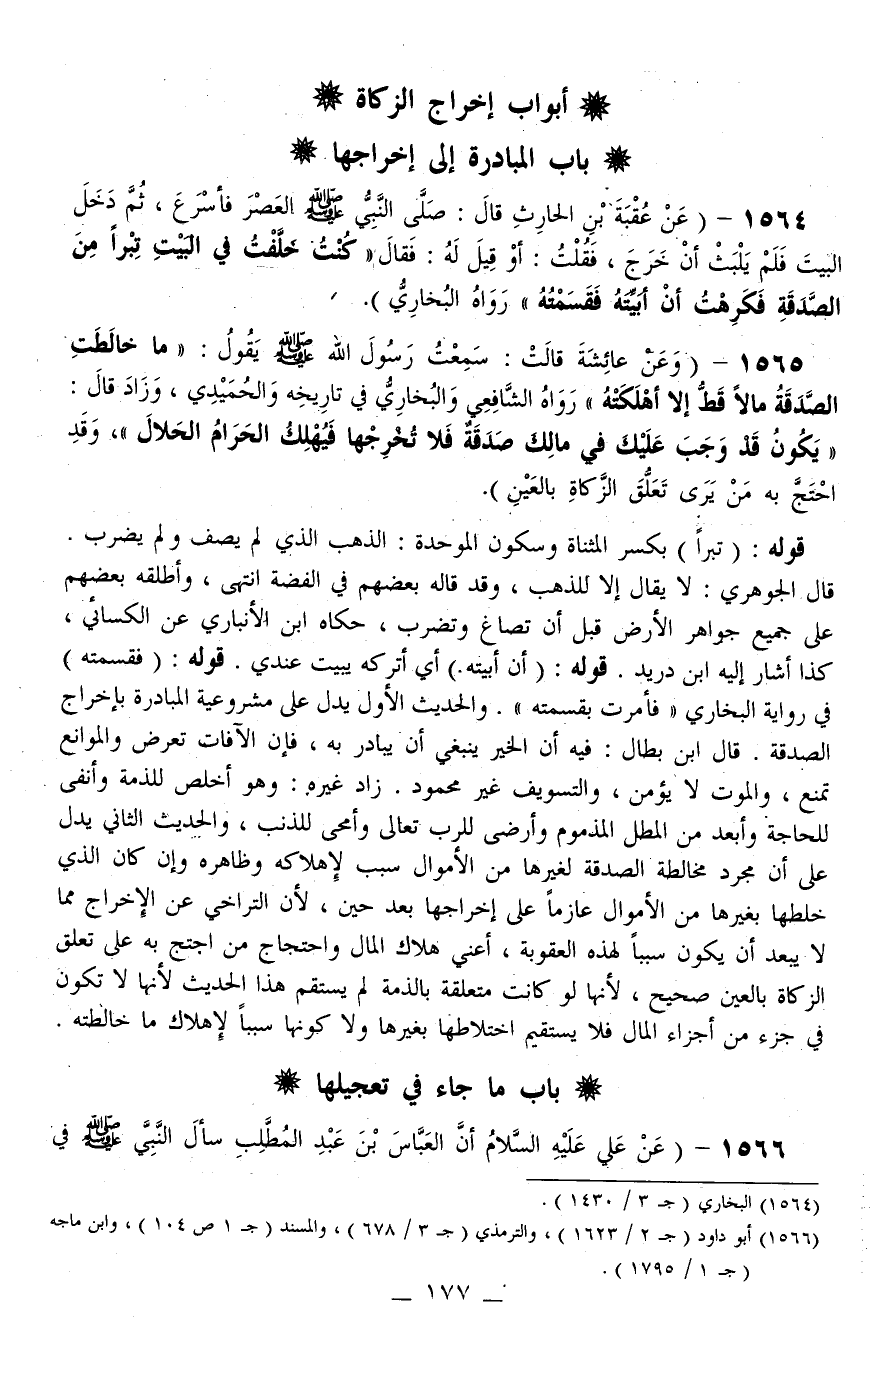 ❋ أبواب إخراج الزكاة ❋
❋ باب المبادرة إلى إخراجها ❋
١٥٦٤ – ( عَنْ عُقْبَةَ بْنِ الحارِثِ قالَ : صَلَّى النَّبِيُّ ﷺ العَصْرَ فأسْرَعَ ، ثُمَّ دَخَلَ
البيتَ فَلَمْ يَلْبَثْ أنْ خَرَجَ ، فَقُلْتُ : أوْ قِيلَ لَهُ : فَقالَ « كُنْتُ خَلَّفْتُ في البَيْتِ تِبْراً مِنَ
الصَّدَقَةِ فَكَرِهْتُ أنْ أبَيِّتَهُ فَقَسَمْتُهُ » رَوَاهُ البُخاريُّ ).
١٥٦٥ – ( وَعَنْ عائِشَةَ قالَتْ : سَمِعْتُ رَسُولَ الله ﷺ يَقُولُ : « ما خالَطَتِ
الصَّدَقَةُ مالاً قَطُّ إلا أهْلَكَتْهُ » رَوَاهُ الشَّافِعِي وَالبُخاريُّ في تارِيخِه وَالحُمَيْدِي ، وَزَادَ قالَ :
« يَكُونُ قَدْ وَجَبَ عَلَيْكَ في مالِكَ صَدَقَةٌ فَلا تُخْرِجْها فَيُهْلِكُ الحَرَامُ الحَلالَ »، وَقَدِ
احْتَجَّ به مَنْ يَرَى تَعَلُّقَ الزَّكاةِ بالعَيْنِ ).
قوله : ( تبراً ) بكسر المثناة وسكون الموحدة : الذهب الذي لم يصف ولم يضرب .
قال الجوهري : لا يقال إلا للذهب ، وقد قاله بعضهم في الفضة انتهى ، وأطلقه بعضهم
على جميع جواهر الأرض قبل أن تصاغ وتضرب ، حكاه ابن الأنباري عن الكسائي ،
كذا أشار إليه ابن دريد . قوله : ( أن أبيته ) أي أتركه يبيت عندي . قوله : ( فقسمته )
في رواية البخاري « فأمرت بقسمته » . والحديث الأول يدل على مشروعية المبادرة بإخراج
الصدقة . قال ابن بطال : فيه أن الخير ينبغي أن يبادر به ، فإن الآفات تعرض والموانع
تمنع ، والموت لا يؤمن ، والتسويف غير محمود . زاد غيره : وهو أخلص للذمة وأنفى
للحاجة وأبعد من المطل المذموم وأرضى للرب تعالى وأمحى للذنب ، والحديث الثاني يدل
على أن مجرد مخالطة الصدقة لغيرها من الأموال سبب لإهلاكه وظاهره وإن كان الذي
خلطها بغيرها من الأموال عازماً على إخراجها بعد حين ، لأن التراخي عن الإخراج مما
لا يبعد أن يكون سبباً لهذه العقوبة ، أعني هلاك المال واحتجاج من احتج به على تعلق
الزكاة بالعين صحيح ، لأنها لو كانت متعلقة بالذمة لم يستقم هذا الحديث لأنها لا تكون
في جزء من أجزاء المال فلا يستقيم اختلاطها بغيرها ولا كونها سبباً لإهلاك ما خالطته .
❋ باب ما جاء في تعجيلها ❋
١٥٦٦ – ( عَنْ عَلي عَلَيْهِ السَّلامُ أنَّ العَبَّاسَ بْنَ عَبْدِ المُطَّلِبِ سألَ النَّبِيَّ ﷺ في
(١٥٦٤) البخاري ( جـ ٣ / ١٤٣٠ ) .
(١٥٦٦) أبو داود ( جـ ٢ / ١٦٢٣ ) ، والترمذي ( جـ ٣ / ٦٧٨ ) ، والمسند ( جـ ١ ص ١٠٤ ) ، وابن ماجه
( جـ ١ / ١٧٩٥ ) .
— ١٧٧ —